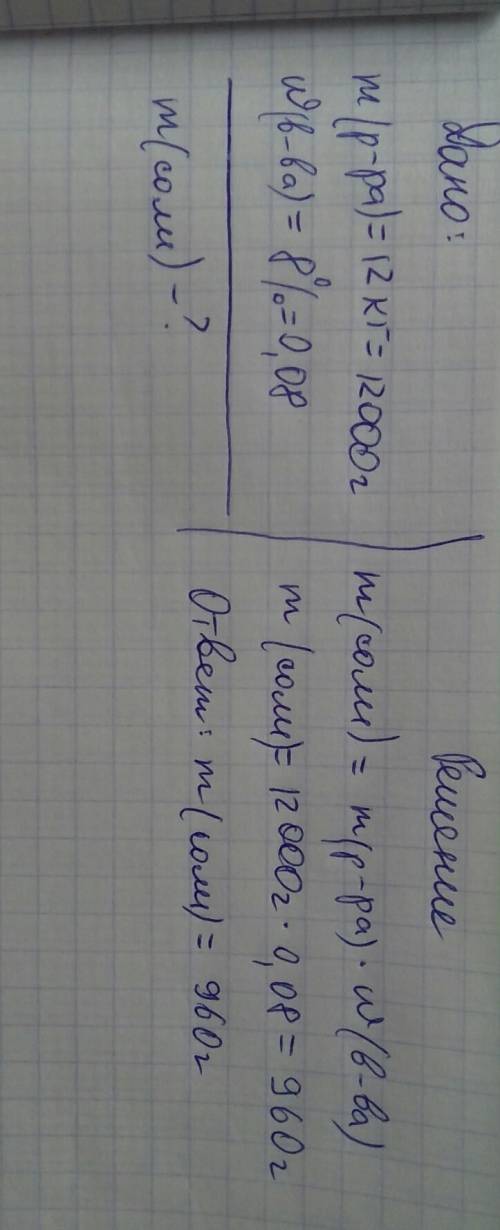 Дано:
m(р-ра)=12кг=12000г
w(в-ва)=8%=0,08
m(соли)-?
Решение
m(соли)=m(р-ра)·w(в-ва)
m(соли)=12000г·0,08=960г
Ответ: m(соли)=960г